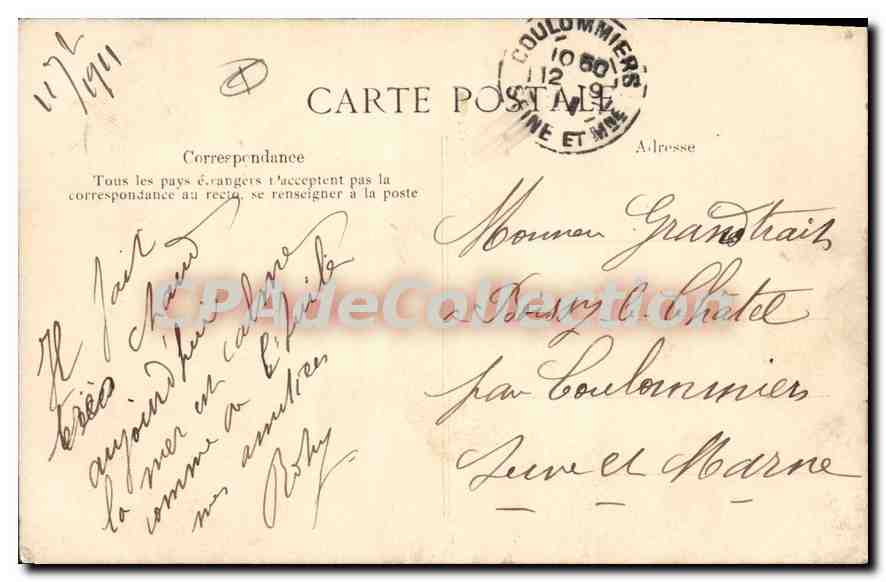 11 7 1911
CARTE POSTALE
COULOMMIERS
10 50
12 9
SEINE ET MNE
Correspondance
Tous les pays étrangers n'acceptent pas la
correspondance au recto, se renseigner à la poste
Il fait
très chaud
aujourd'hui
la mer est calme
comme de l'huile
mes amitiés
Adresse
Grandtrait
à Boissy le Châtel
par Coulommiers
Seine et Marne
CPAdeCollection.com